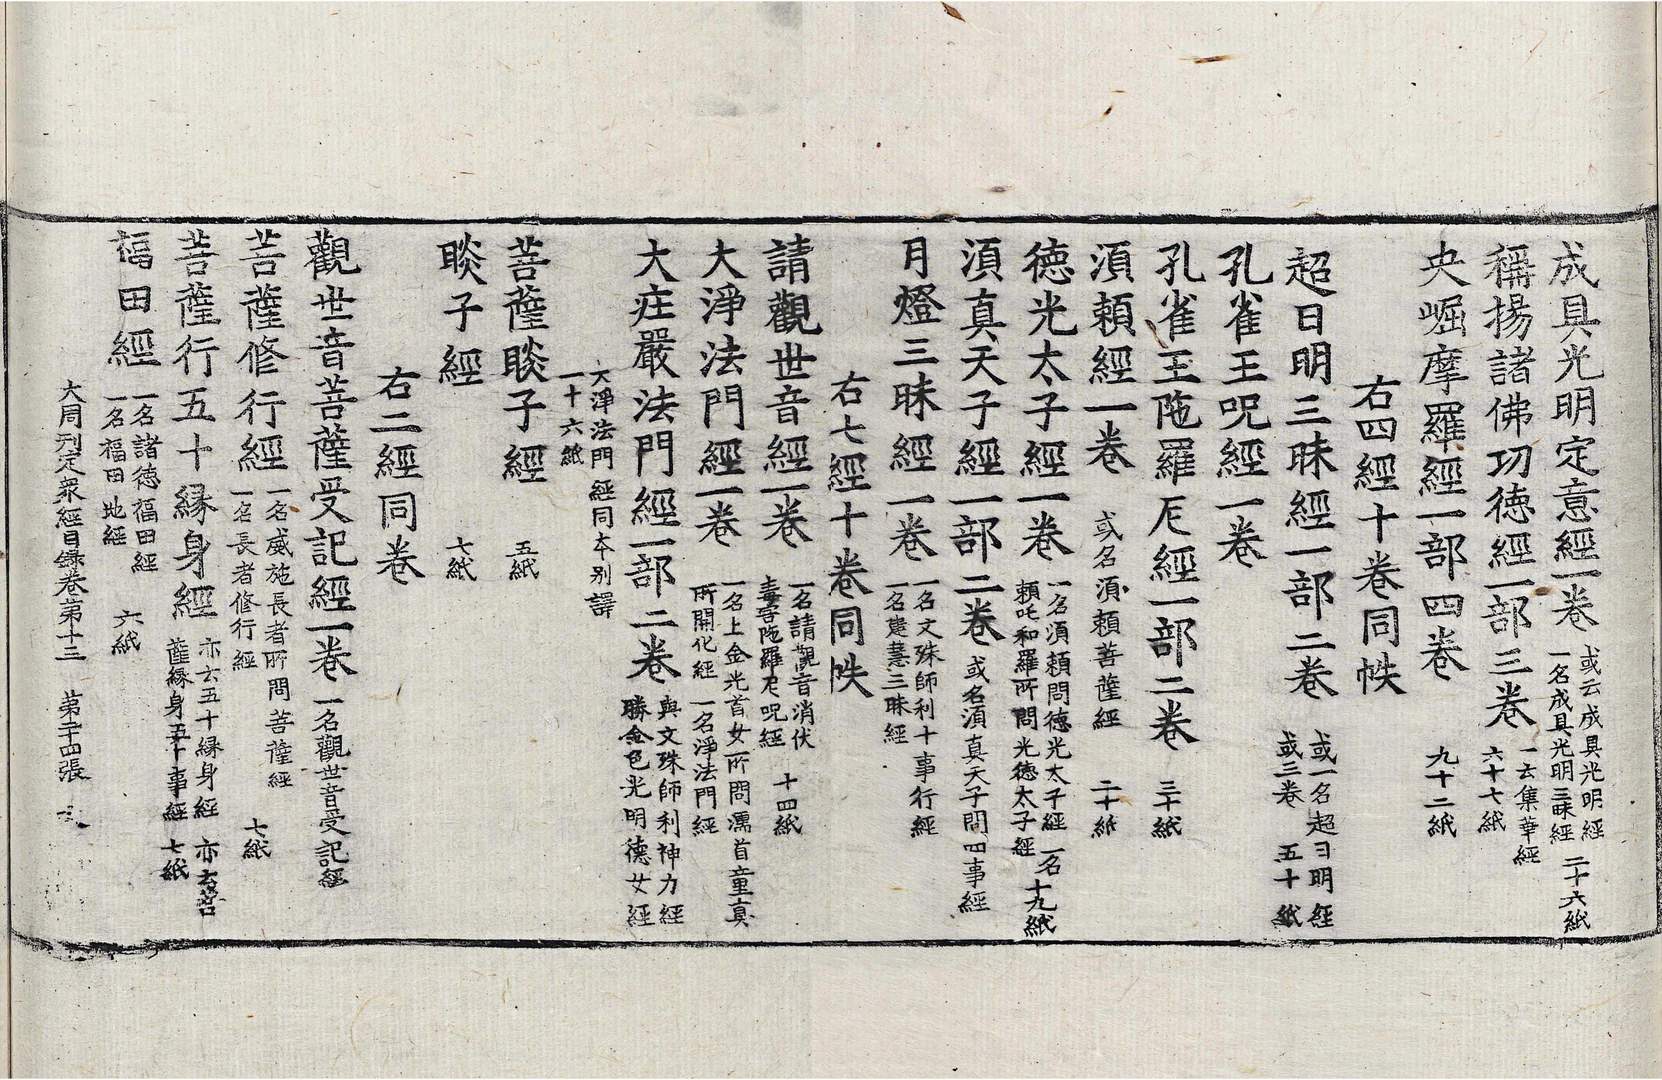 成具光明定意經一卷 或云成具光明經 一名成具光明三昧經 二十六紙
稱揚諸佛功德經一部三卷 一云集華經 六十七紙
央崛摩羅經一部四卷 九十二紙
右四經十卷同帙
超日明三昧經一部二卷 或一名超日明經 或三卷 五十紙
孔雀王呪經一卷
孔雀王陁羅尼經一部二卷 三十紙
湏賴經一卷 或名湏賴菩薩經 二十紙
德光太子經一卷 一名湏賴問德光太子經 一名賴吒和羅所問光德太子經 十九紙
湏真天子經一部二卷 或名湏真天子問四事經
月燈三昧經一卷 一名文殊師利十事行經 一名建慧三昧經
右七經十卷同帙
請觀世音經一卷 一名請觀音消伏毒害陁羅尼呪經 十四紙
大淨法門經一卷 一名上金光首女所問濡首童真所開化經 一名淨法門經
大庄嚴法門經一部二卷 與文殊師利神力經勝金色光明德女經
大淨法門經同本别譯 一十六紙
菩薩睒子經 五紙
睒子經 七紙
右二經同卷
觀世音菩薩受記經一卷 一名觀世音受記經
菩薩修行經 一名威施長者所問菩薩經 一名長者修行經 七紙
菩薩行五十緣身經 亦云五十緣身經 亦云菩薩緣身五十事經 七紙
福田經 一名諸德福田經 一名福田地經 六紙
大周刊定衆經目錄卷第十三 第二十四張